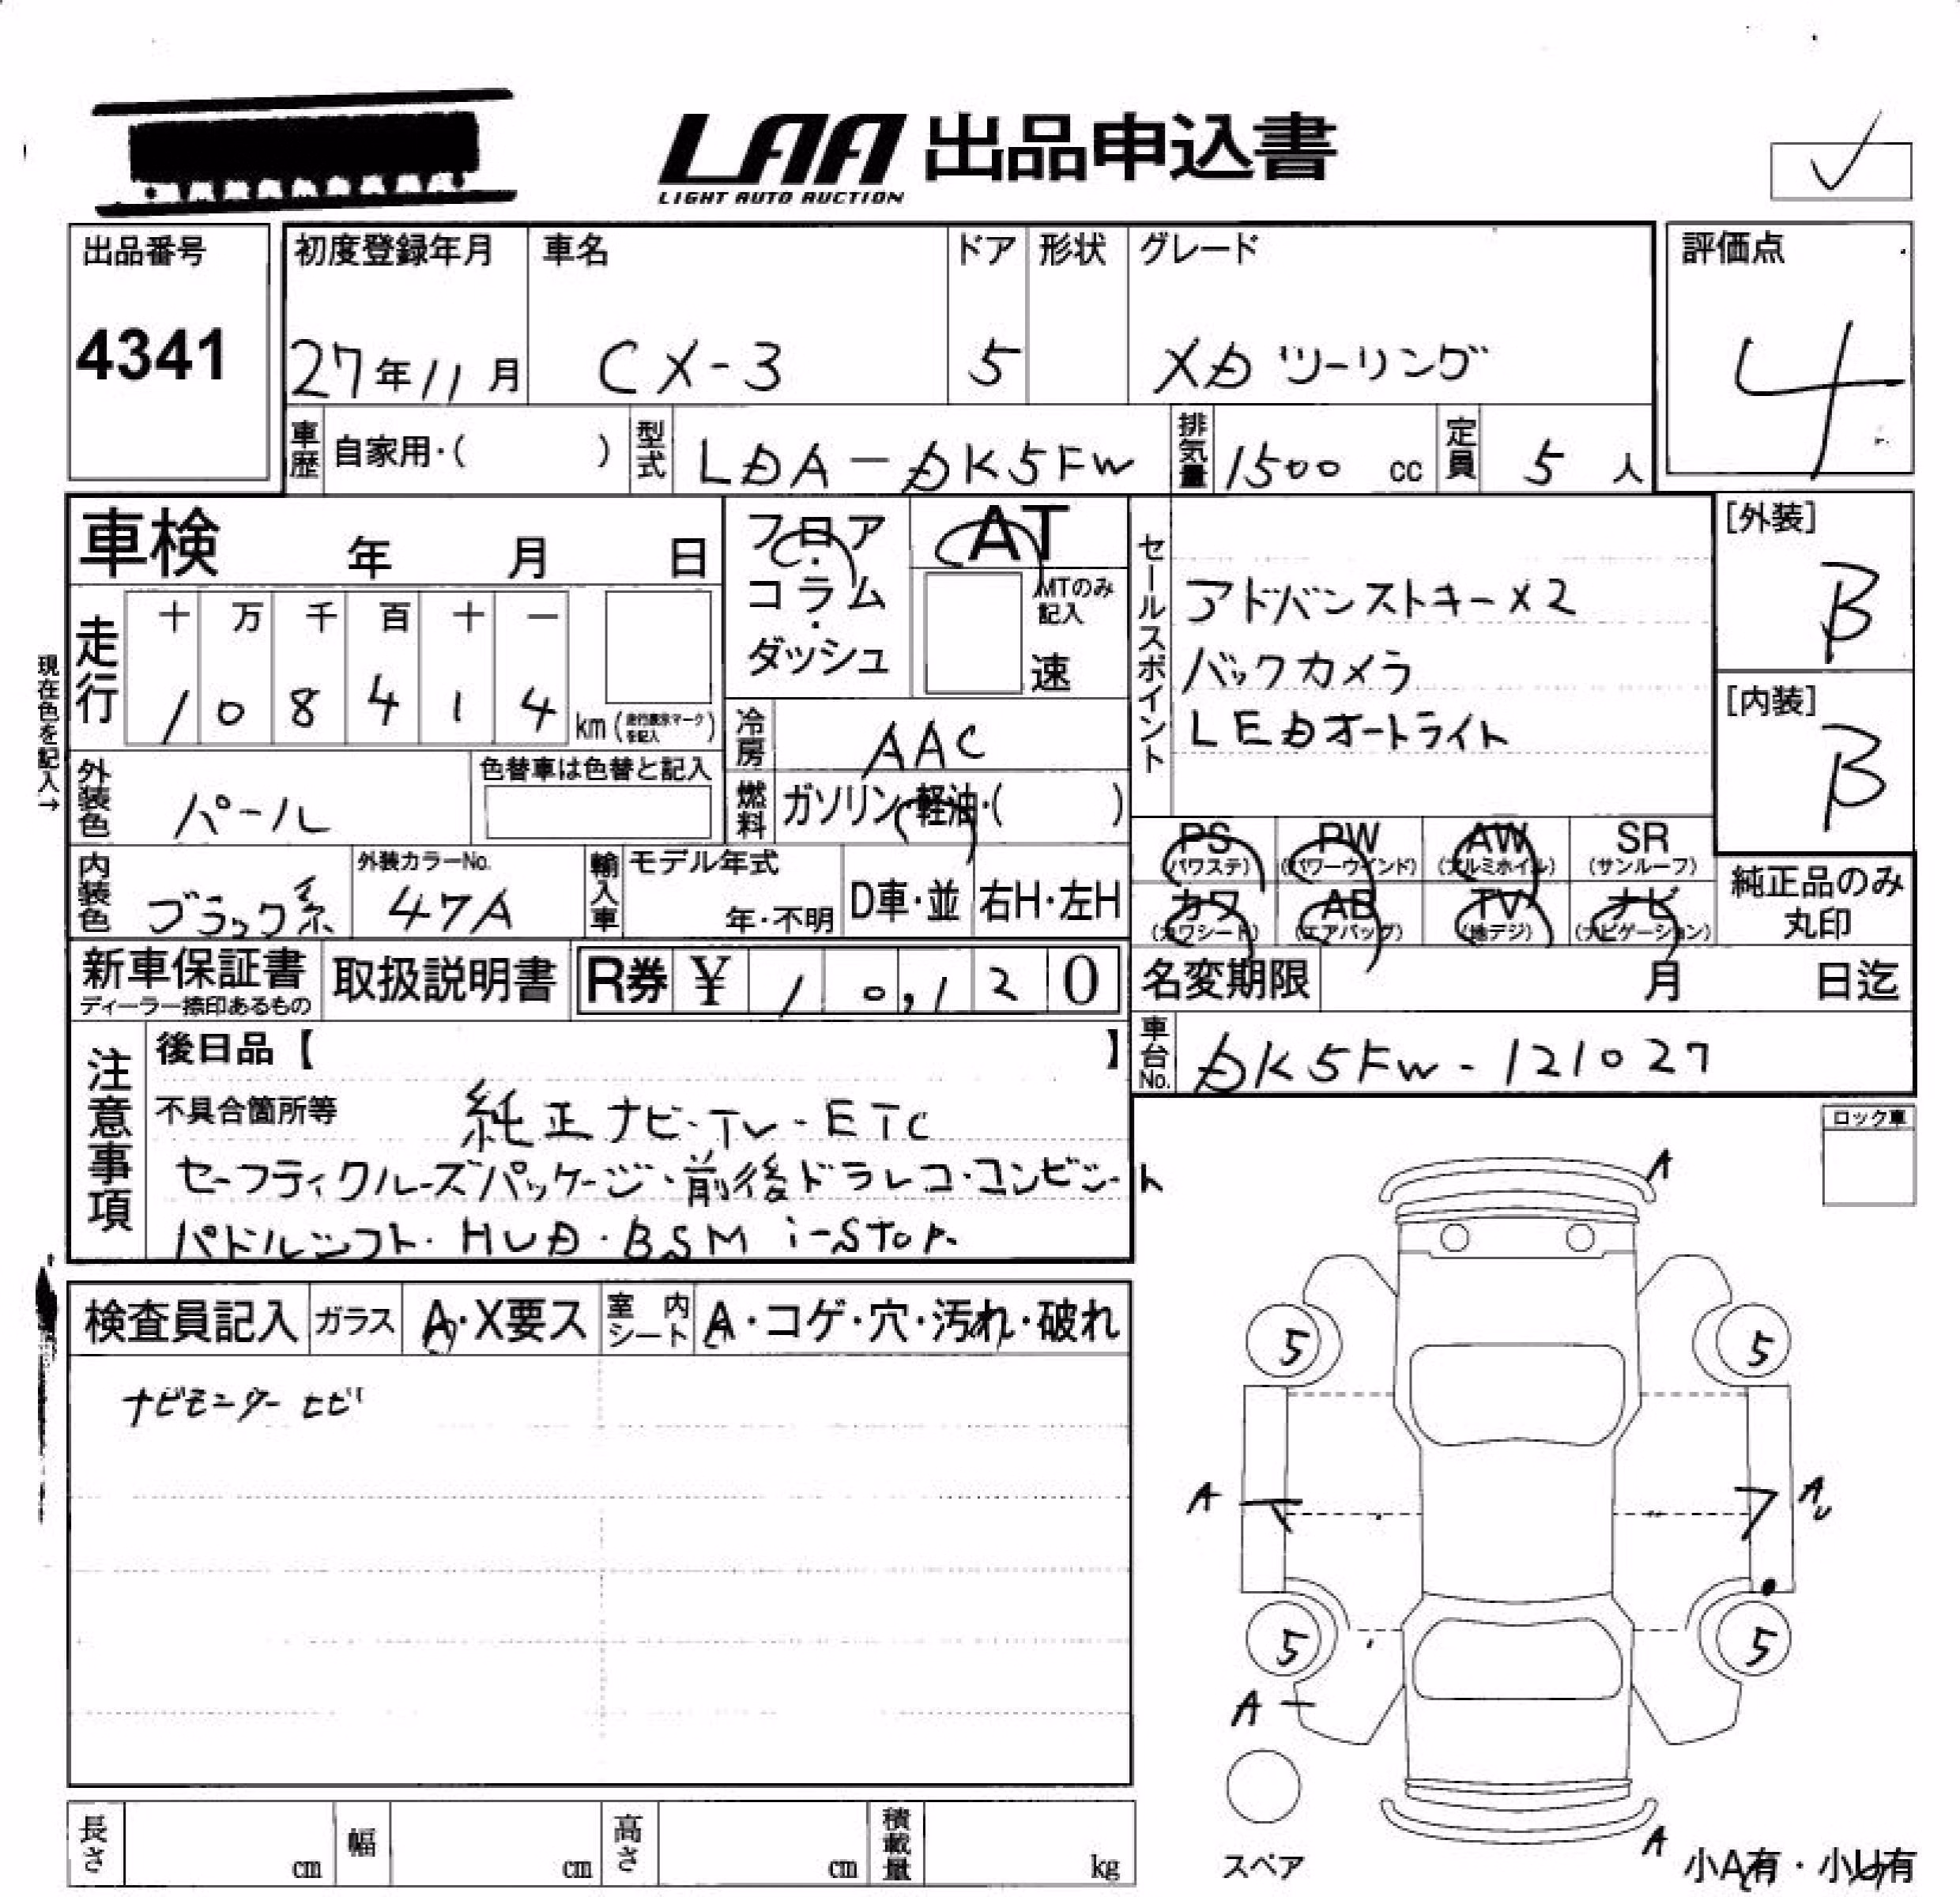 LAA 出品申込書
LIGHT AUTO AUCTION
出品番号
4341
初度登録年月
27年11月
車名
CX-3
ドア
5
形状
グレード
XD ツーリング
評価点
4
車歴 自家用・( )
型式 LDA-DK5FW
排気量 1500 cc
定員 5 人
車検 年 月 日
フロア・コラム・ダッシュ
AT
MTのみ記入
速
セールスポイント
アドバンストキー×2
バックカメラ
LEDオートライト
[外装]
B
[内装]
B
現在色を記入→
走行
十 万 千 百 十 一
1 0 8 4 1 4 km (走行表示マークを記入)
冷房 AAC
外装色 パール
色替車は色替と記入
燃料 ガソリン・軽油・( )
PS (パワステ)
PW (パワーウインド)
AW (アルミホイル)
SR (サンルーフ)
内装色 ブラック系
外装カラーNo. 47A
輸入車 モデル年式
年・不明
D車・並
右H・左H
カワ (カワシート)
AB (エアバッグ)
TV (地デジ)
ナビ (ナビゲーション)
純正品のみ丸印
新車保証書
ディーラー捺印あるもの
取扱説明書
R券 ¥ 10,120
名変期限 月 日迄
車台No. DK5FW-121027
注意事項
後日品【 】
不具合箇所等 純正ナビ・TV・ETC
セーフティクルーズパッケージ・前後ドラレコ・コンビシート
パドルシフト・HUD・BSM i-STOP
ロック車
検査員記入
ガラス A・X要ス
室内シート A・コゲ・穴・汚れ・破れ
ナビモニター ヒビ
A
5 5
A A
U
5 5
A
スペア
A
小A有・小U有
長さ cm
幅 cm
高さ cm
積載量 kg